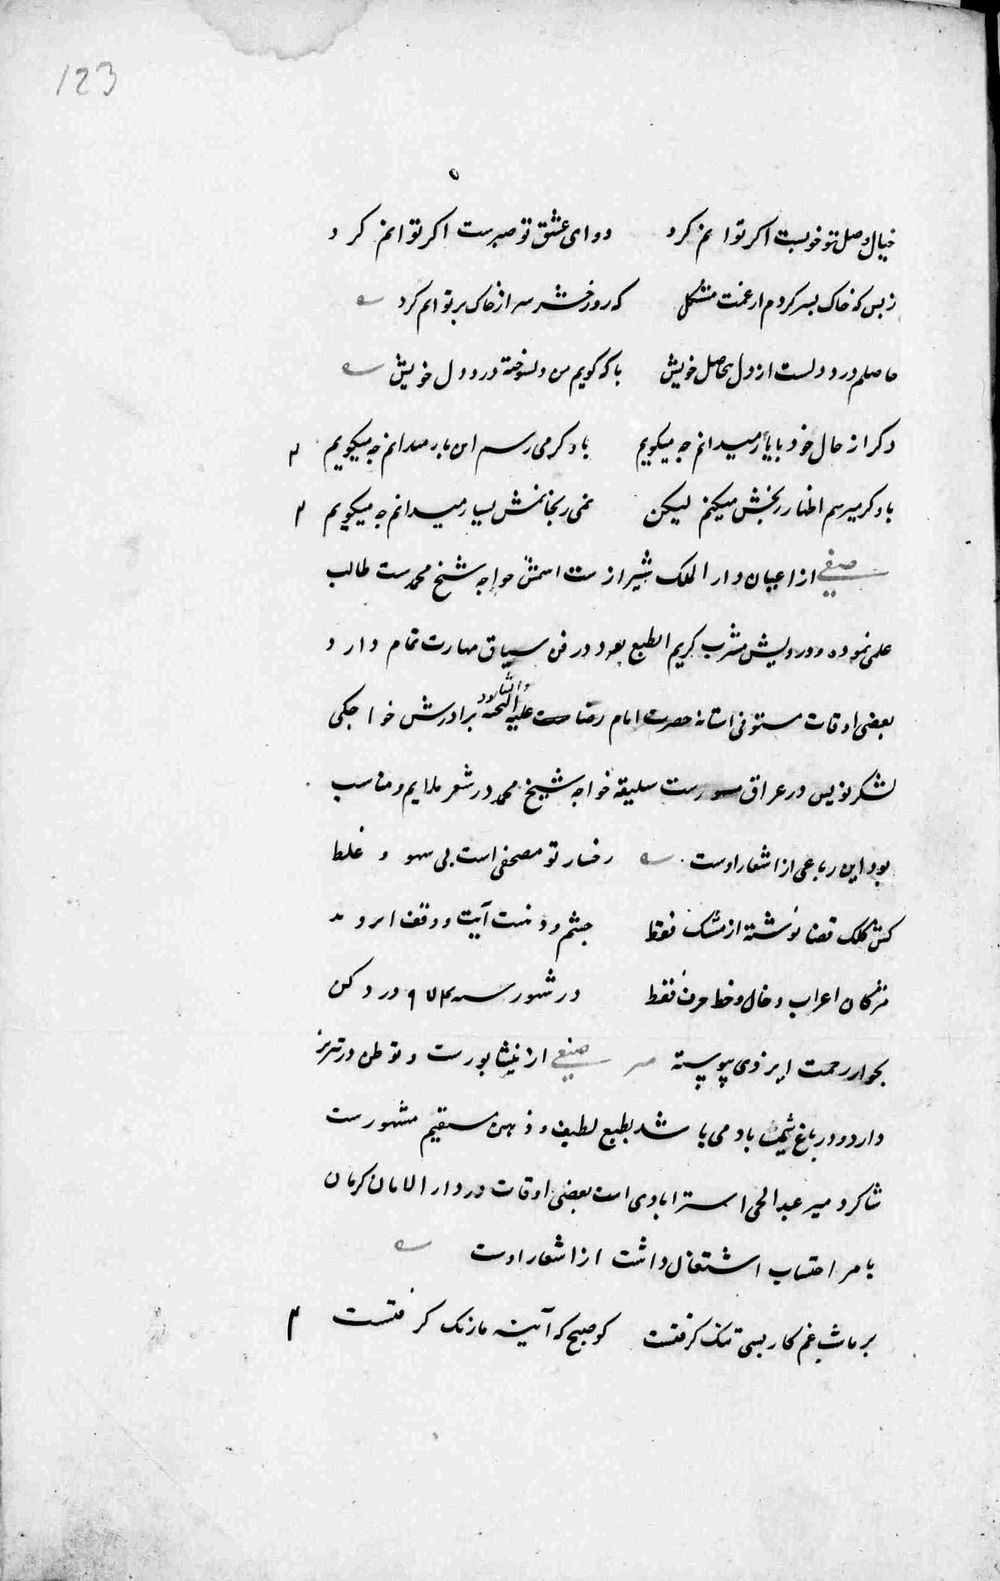 123
خیال وصل تو خوبست اکر توانم کرد دوای عشق تو صبرست اکر توانم کرد
ز بس که خاک بسر کردم از غمت مشکل که روز حشر سر از خاک بر توانم کرد
حاصلم درد دلست از دل بیحاصل خویش با که کویم من دلسوخته درد دل خویش
دکر از حال خود با یار میدانم چه میکویم باو کر می رسم این بار میدانم چه میکویم
باو کر میرسم اظهار رنجش میکنم لیکن نمی رنجانمش بسیار میدانم چه میکویم
صیفی از اعیان دار الملک شیراز ست اسمش خواجه شیخ محمدست طالب
علمی نموده و درویش مشرب کریم الطبع بود در فن سیاق مهارت تمام دارد
بعضی اوقات مستوفی استانه حضرت امام رضاست علیه التحیه والثنا بود برادرش خواجکی
لشکر نویس در عراق مشهورست سلیقه خواجه شیخ محمد در شعر ملایم و مناسب
بود این رباعی از اشعار اوست رخسار تو مصحفی است بی سهو و غلط
کش کلک قضا نوشته از مشک فقط چشم و دهنت آیت و وقف ابرو مد
مژکان اعراب و خال و خط حرف و نقط در شهور سنه ۹۷۴ در دکن
بجوار رحمت ایزدی پیوسته صنیعی از نیشابورست و توطن در تبریز
دارد و در باغ شیخ باد می باشد بطبع لطیف و ذهن مستقیم مشهورست
شاکرد میر عبدالحی استرابادی است بعضی اوقات در دار الامان کرمان
بامر احتساب اشتغال داشت از اشعار اوست
بر ما شب غم کار بسی تنک کرفتست کو صبح که آئینه ما زنک کرفتست